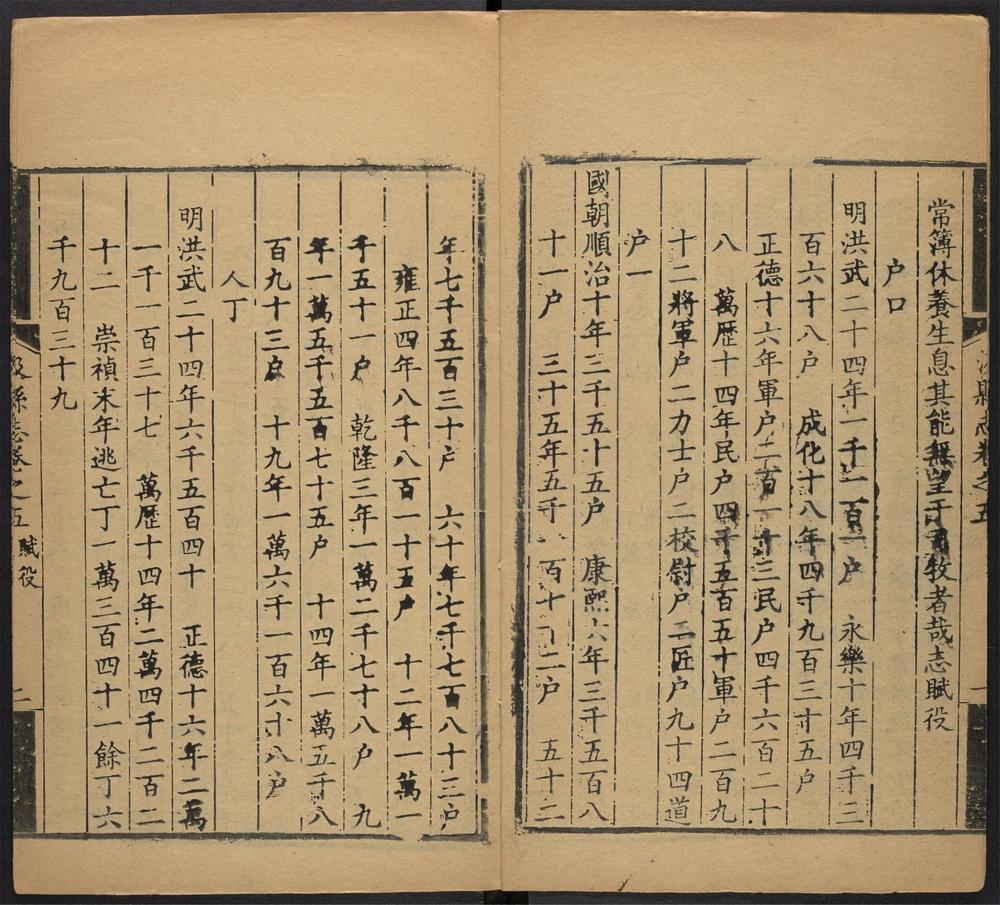 縣志卷之五
一
常簿休養生息其能無望于司牧者哉志賦役
户口
明洪武二十四年一千二百一户 永樂十年四千三
百六十八户 成化十八年四千九百三十五户
正德十六年軍户二百一十三民户四千六百二十
八 萬歷十四年民户四千五百五十軍户二百九
十二將軍户二力士户二校尉户二匠户九十四道
户一
國朝順治十年三千五十五户 康熙六年三千五百八
十一户 三十五年五千 百十 二户 五十二
年七千五百三十户 六十年七千七百八十三户
雍正四年八千八百一十五户 十二年一萬一
千五十一户 乾隆三年一萬二千七十八户 九
年一萬五千五百七十五户 十四年一萬五千八
百九十三户 十九年一萬六千一百六十八户
人丁
明洪武二十四年六千五百四十 正德十六年二萬
一千一百三十七 萬歷十四年二萬四千二百二
十二 崇禎末年逃亡丁一萬三百四十一餘丁六
千九百三十九
縣志卷之五 賦役
二